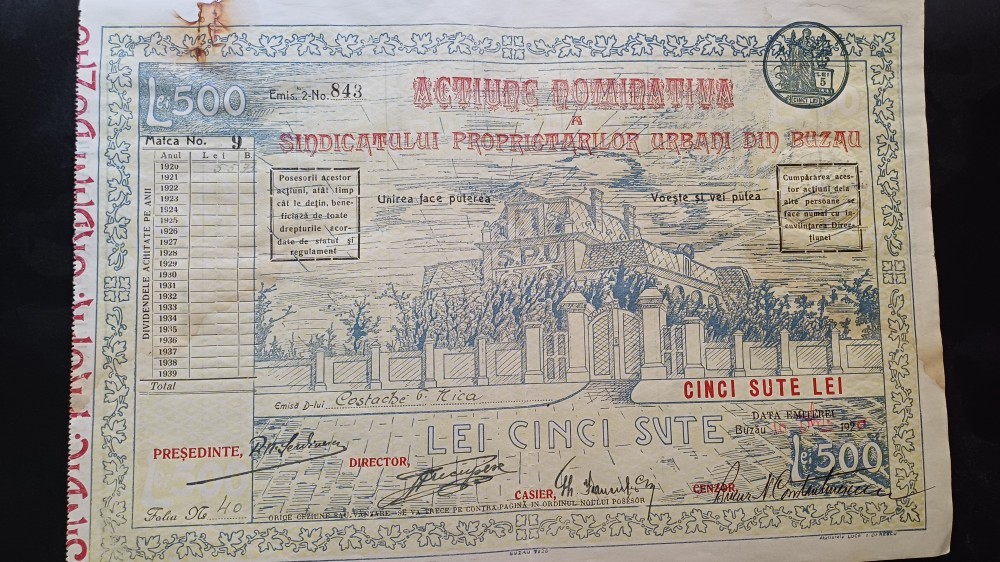 Lei 500
Emis. 2-No. 843
ACTIUNE NOMINATIVA
A
SINDICATULUI PROPRIETARILOR URBANI DIN BUZAU
LEI
5
CINCI LEI
Matca No. 9
Anul Lei B.
1920
1921
1922
1923
1924
1925
1926
1927
1928
1929
1930
1931
1932
1933
1934
1935
1936
1937
1938
1939
Total
DIVIDENDELE ACHITATE PE ANII
Posesorii acestor
acțiuni, atât timp
cât le dețin, bene-
ficiază de toate
drepturile acor-
date de statut și
regulament
Unirea face puterea
Voește și vei putea
Cumpărarea aces-
tor acțiuni dela
alte persoane se
face numai cu în-
cuviințarea Direc-
țiunei
S.P.U
CINCI SUTE LEI
Emisă D-lui Costache G. Nica
LEI CINCI SUTE
DATA EMITEREI
Buzău 192
Lei 500
PREȘEDINTE,
DIRECTOR,
CASIER,
CENZOR,
Foliu No 40
ORICE CEZIUNE SAU VÂNZARE SE VA TRECE PE CONTRA PAGINĂ IN ORDINUL NOULUI POSESOR